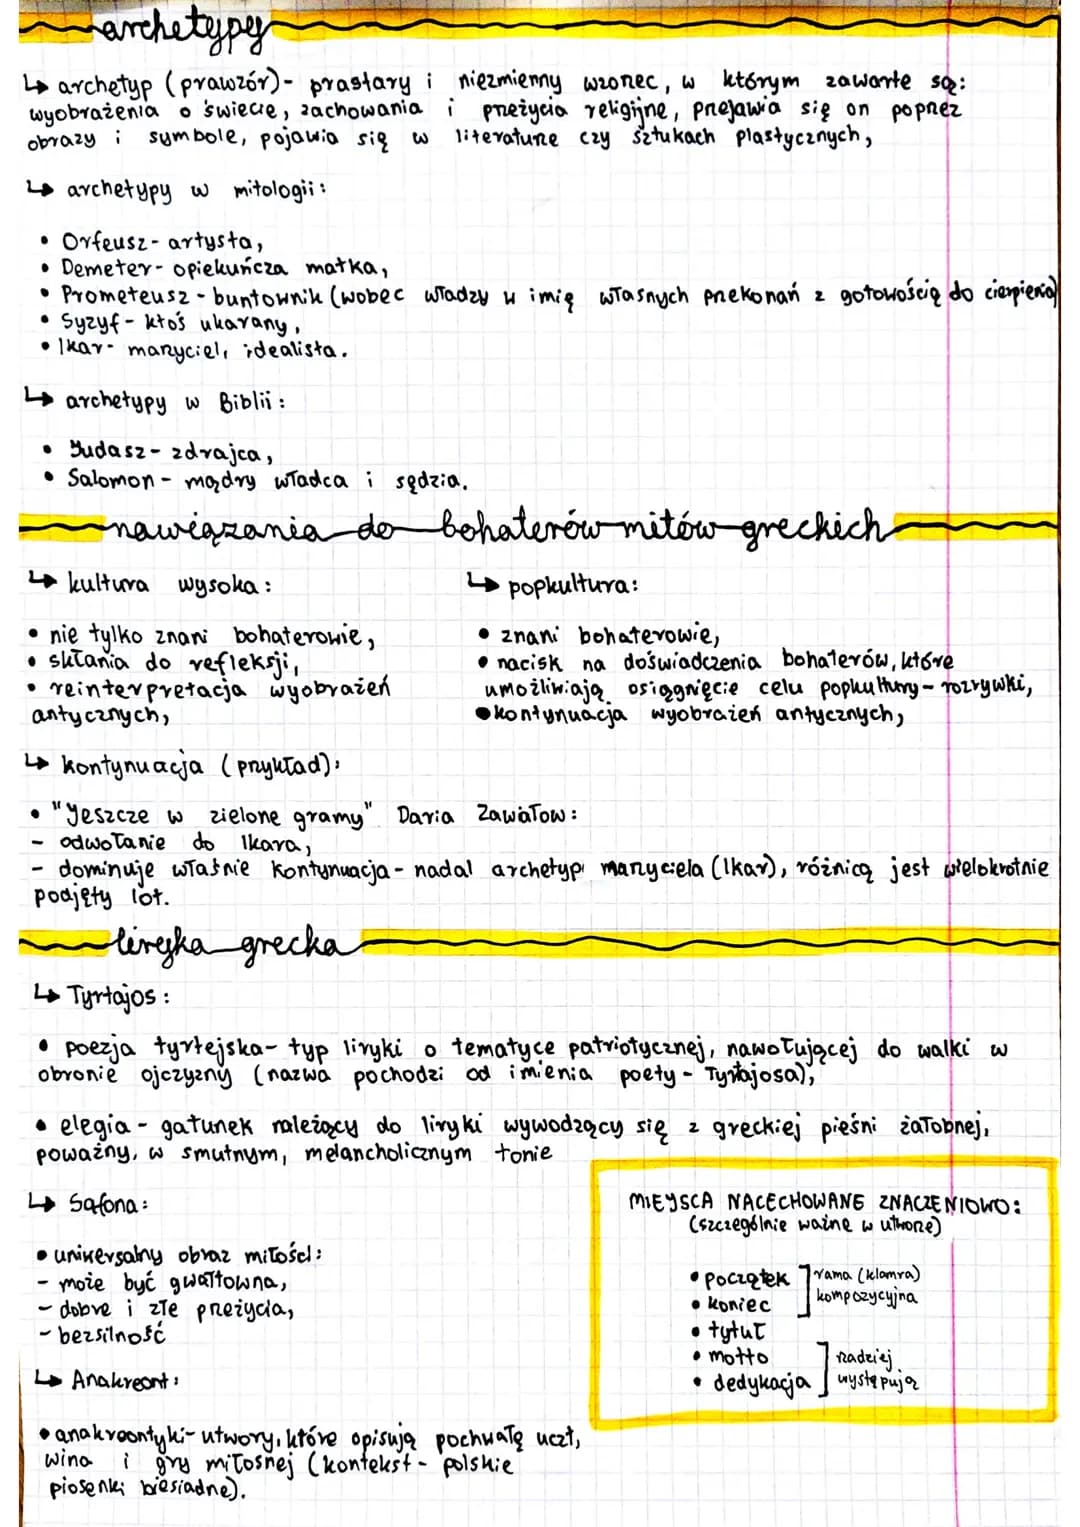 archetypy
↳ archetyp (prawzór)- prastary i niezmienny wzorzec, w którym zawarte są:
wyobrażenia o świecie, zachowania i przeżycia religijne, przejawia się on poprzez
obrazy i symbole, pojawia się w literaturze czy sztukach plastycznych,
↳ archetypy w mitologii:
• Orfeusz- artysta,
• Demeter- opiekuńcza matka,
• Prometeusz - buntownik (wobec władzy w imię własnych przekonań z gotowością do cierpienia)
• Syzyf- ktoś ukarany,
• Ikar- marzyciel, idealista.
↳ archetypy w Biblii:
• Judasz- zdrajca,
• Salomon - mądry władca i sędzia.
nawiązania do bohaterów mitów greckich
↳ kultura wysoka:
• nie tylko znani bohaterowie,
• skłania do refleksji,
• reinterpretacja wyobrażeń
antycznych,
↳ popkultura:
• znani bohaterowie,
• nacisk na doświadczenia bohaterów, które
umożliwiają osiągnięcie celu popkultury- rozrywki,
• kontynuacja wyobrażeń antycznych,
↳ kontynuacja (przykład):
• "Jeszcze w zielone gramy" Daria Zawiałow:
- odwołanie do Ikara,
- dominuje właśnie kontynuacja- nadal archetyp marzyciela (Ikar), różnicą jest wielokrotnie
podjęty lot.
liryka grecka
↳ Tyrtajos:
• poezja tyrtejska- typ liryki o tematyce patriotycznej, nawołującej do walki w
obronie ojczyzny (nazwa pochodzi od imienia poety - Tyrtajosa),
• elegia - gatunek należący do liryki wywodzący się z greckiej pieśni żałobnej,
poważny, w smutnym, melancholicznym tonie
↳ Safona:
• uniwersalny obraz miłości:
- może być gwałtowna,
- dobre i złe przeżycia,
- bezsilność
↳ Anakreont:
• anakreontyki- utwory, które opisują pochwałę uczt,
wina i gry miłosnej (kontekst - polskie
piosenki biesiadne).
MIEJSCA NACECHOWANE ZNACZENIOWO:
(szczególnie ważne w utworze)
• początek
• koniec
rama (klamra)
kompozycyjna
• tytuł
• motto
• dedykacja
rzadziej
występują